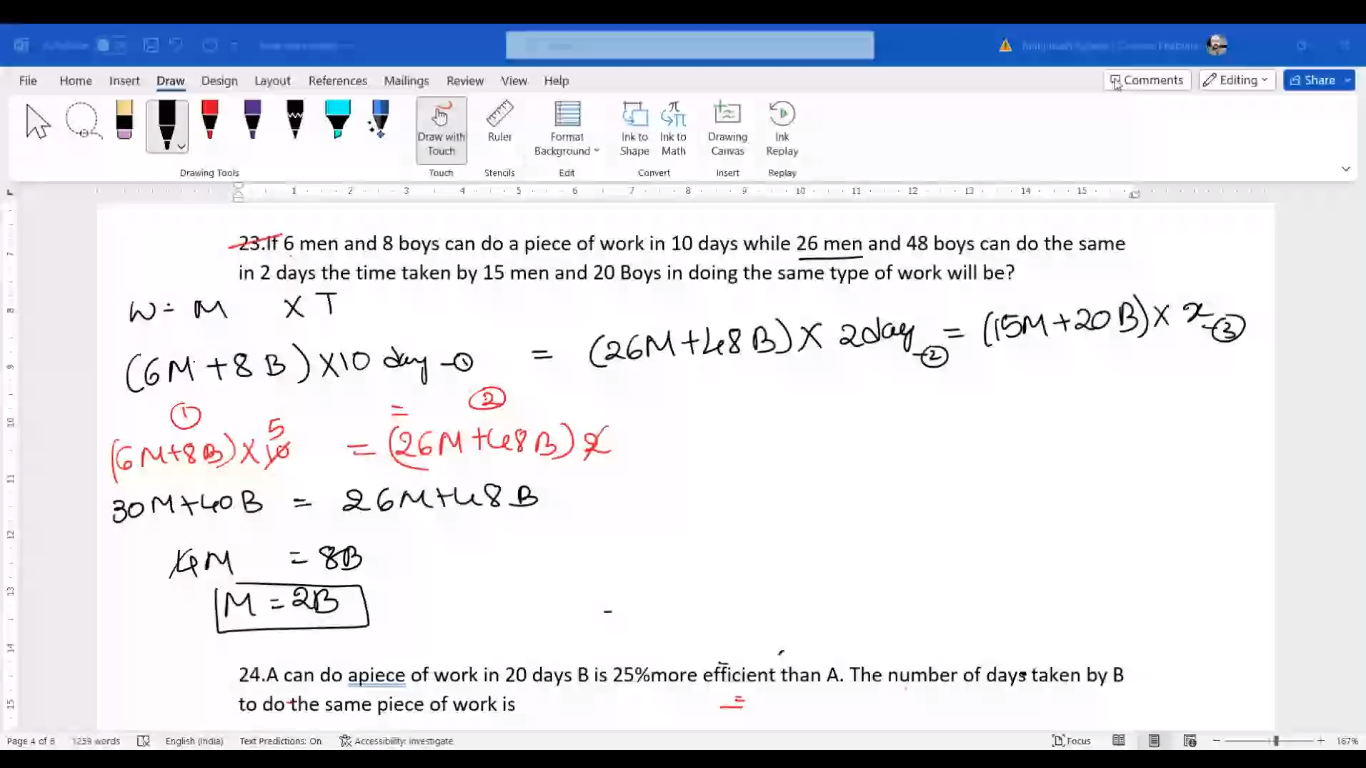 File Home Insert Draw Design Layout References Mailings Review View Help Comments Editing Share
Draw with Touch Ruler Format Background Ink to Shape Ink to Math Drawing Canvas Ink Replay
Drawing Tools Touch Stencils Edit Convert Insert Replay
1 2 3 4 5 6 7 8 9 10 11 12 13 14 15
23.If 6 men and 8 boys can do a piece of work in 10 days while 26 men and 48 boys can do the same
in 2 days the time taken by 15 men and 20 Boys in doing the same type of work will be?
W = M X T
(6M+8B)×10 day -① = (26M+48B)× 2day -② = (15M+20B)× x -③
① = ②
(6M+8B)×10 5 = (26M+48B) 2
30M+40B = 26M+48B
4M = 8B
M = 2B
24.A can do apiece of work in 20 days B is 25%more efficient than A. The number of days taken by B
to do the same piece of work is
Page 4 of 8 1259 words English (India) Text Predictions: On Accessibility: Investigate Focus 167%